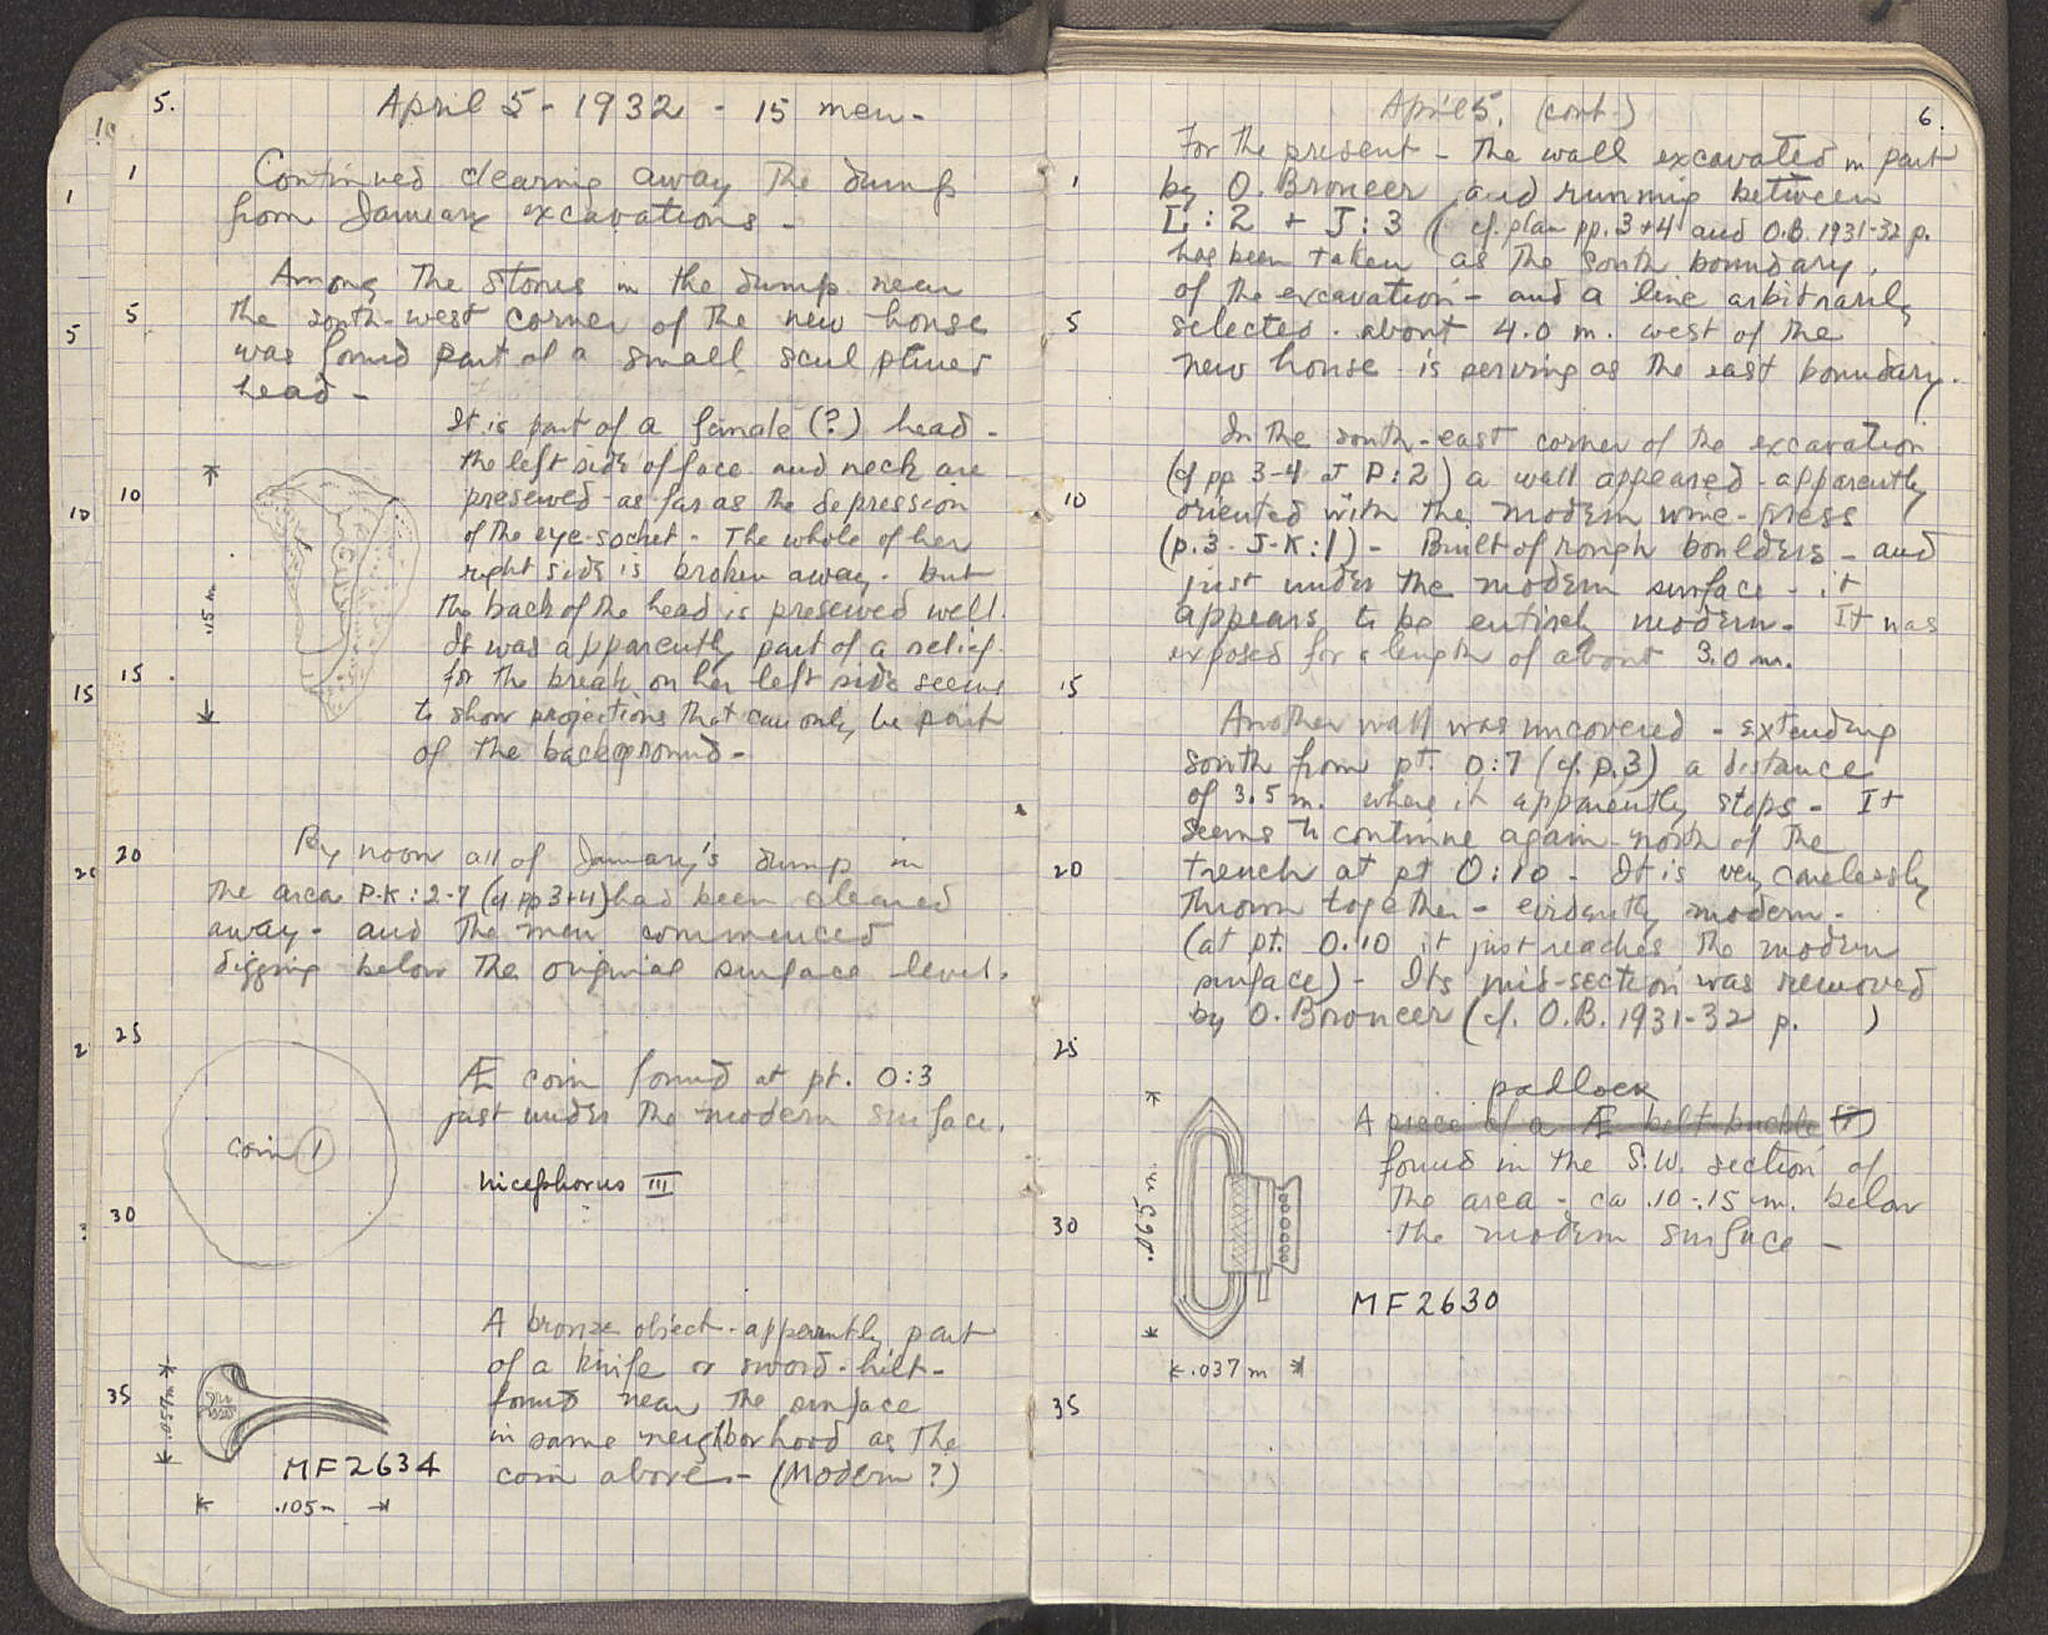 5.
April 5 - 1932 - 15 men -
1
Continued clearing away the dump
from January excavations -
Among the stones in the dump near
5
the south-west corner of the new house
was found part of a small sculptured
head -
It is part of a female (?) head -
the left side of face and neck are
10
preserved as far as the depression
of the eye-socket - The whole of her
right side is broken away - but
the back of the head is preserved well.
It was apparently part of a relief
15
for the break on her left side seems
to show projections that can only be part
of the background -
.15 m
20
By noon all of January's dump in
the area P-K:2-7 (cf pp 3+4) had been cleared
away - and the men commenced
digging below the original surface level.
25
Æ coin found at pt. O:3
just under the modern surface.
coin 1
Nicephorus III
30
A bronze object - apparently part
of a knife or sword-hilt -
35
found near the surface
in same neighborhood as the
coin above - (Modern?)
.057 m
MF2634
.105 m
6.
April 5. (cont.)
For the present - the wall excavated in part
1
by O. Broneer and running between
L:2 + J:3 (cf. plan pp. 3+4 and O.B. 1931-32 p.
has been taken as the south boundary
of the excavation - and a line arbitrarily
5
selected about 4.0 m. west of the
new house is serving as the east boundary.
In the south-east corner of the excavation
(cf pp 3-4 at P:2) a wall appeared - apparently
10
oriented with the modern wine-press
(p.3 - J-K:1) - Built of rough boulders - and
just under the modern surface - it
appears to be entirely modern. It was
exposed for a length of about 3.0 m.
15
Another wall was uncovered - extending
south from pt. O:7 (cf. p.3) a distance
of 3.5 m. where it apparently stops - It
seems to continue again north of the
20
trench at pt O:10 - It is very carelessly
thrown together - evidently modern -
(at pt. O:10 it just reaches the modern
surface) - Its mid-section was removed
by O. Broneer (cf. O.B. 1931-32 p. )
25
padlock
A piece of a Æ belt-buckle (?)
found in the S.W. section of
the area - ca .10-.15 m. below
30
the modern surface -
.065 m.
MF2630
.037 m
35